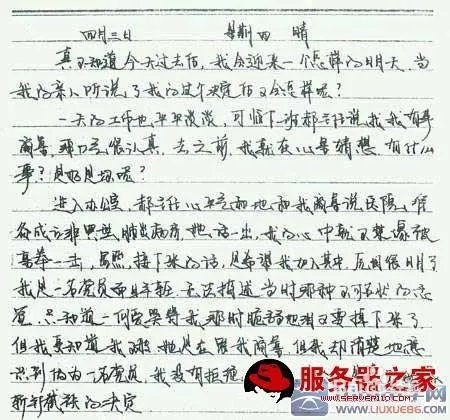 四月三日 星期四 晴
真不知道今天过去后,我会迎来一个怎样的明天,当
我的亲人听说了我的这个决定后又会怎样呢?
一天的工作也平平淡淡,可临下班都主任说找我有事
商量,那口气很认真,去之前,我就在心里猜想有什么
事?是好是坏呢?
进入办公室,都主任心平气和地和我商量说医院准
备成立非典型肺炎病房,她话一出,我的心中就不禁像被
重拳一击,虽然接下来的话,是希望我加入其中,原因很明了
我是一名党员而且年轻,无法描述当时那种不可名状的感
觉,只知道一向坚强的我那时脆弱的泪又要掉下来了
但我真知道,我 她是在跟我商量,但我却清楚地意
识到作为一名党员,我没有拒绝
的决定
服务器之家
WWW.SERVER110.COM
WWW.LUXUE86.COM